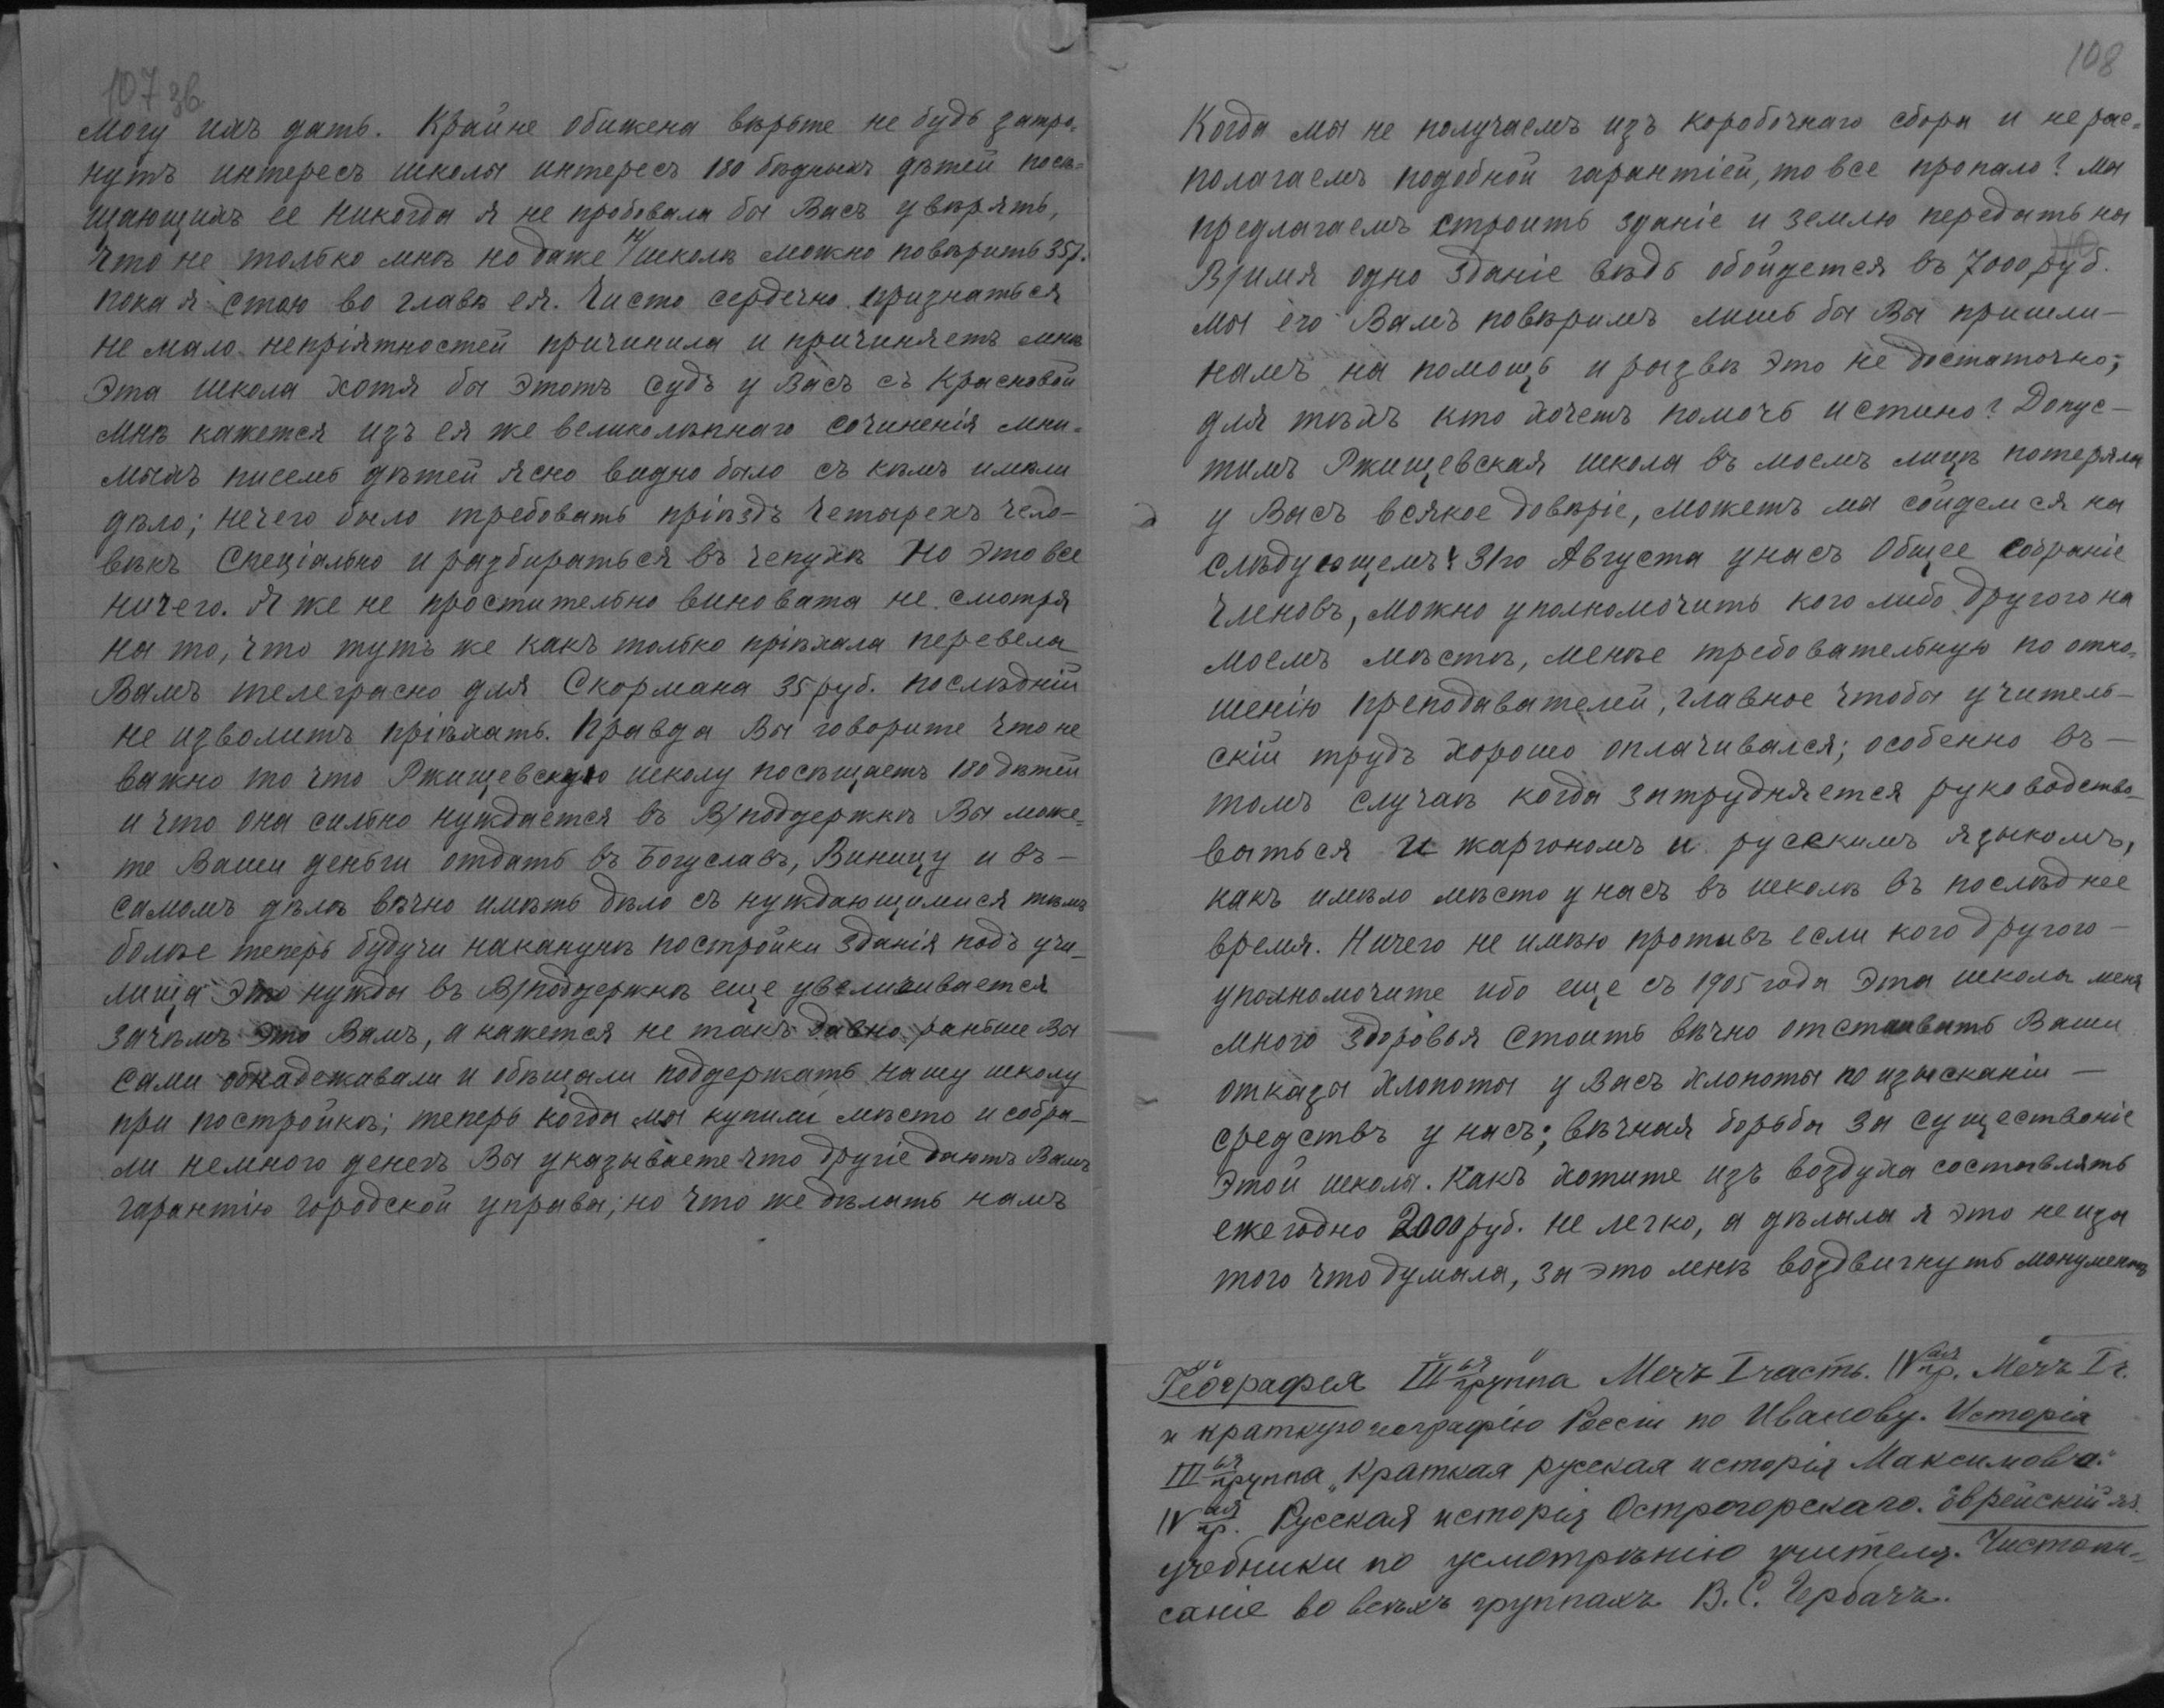 107 зв.
могу имъ дать. Крайне обижена вѣрьте не будь затро=
нутъ интересъ школы интересъ 180 бѣдныхъ дѣтей посѣ=
щающихъ ее никогда я не пробовала бы Васъ увѣрять,
что не только мнѣ но даже н/школѣ можно повѣрить 35р.
пока я стою во главѣ ея. Чисто сердечно признаться
не мало непріятностей причинила и причиняетъ мнѣ
эта школа хотя бы этотъ судъ у Васъ съ Красновой
мнѣ кажется изъ ея же великолѣпнаго сочиненія мни=
мыхъ писемъ дѣтей ясно видно было съ кѣмъ имѣли
дѣло; нечего было требовать пріѣздъ четырехъ чело-
вѣкъ спеціально и разбираться въ чепухѣ Но это все
ничего. Я же не простительно виновата не смотря
на то, что тутъ же какъ только пріѣхала перевела
Вамъ телеграсно для Скормана 35 руб. послѣдній
не изволитъ пріѣхать. Правда Вы говорите что не
важно то что Ржищевскую школу посѣщаетъ 180 дѣтей
и что она сильно нуждается въ В/поддержкѣ Вы може=
те Ваши деньги отдать въ Богуславъ, Виницу и въ-
самомъ дѣлѣ вѣчно имѣть дѣло съ нуждающимися тѣмъ
болѣе теперь будучи наканунѣ постройки зданія подъ учи-
лища это нужды въ В/поддержкѣ еще увеличивается
зачѣмъ это Вамъ, а кажется не такъ давно раньше Вы
сами обнадеживали и обѣщали поддержать нашу школу
при постройкѣ; теперь когда мы купили мѣсто и собра-
ли немного денегъ Вы указываете что другіе даютъ Вамъ
гарантію городской управы; но что же дѣлать намъ
108
Когда мы не получаемъ изъ коробочнаго сбора и не рас=
полагаемъ подобной гарантіей, то все пропало? Мы
предлагаемъ строить зданіе и землю передать на
В/имя одно зданіе вѣдь обойдется въ 7000 руб.
мы его Вамъ повѣримъ лишь бы Вы пришли-
намъ на помощь и развѣ это не достаточно;
для тѣхъ кто хочетъ помочь истино? Допус-
тимъ Ржищевская школа въ моемъ лицѣ потеряла
у Васъ всякое довѣріе, можетъ мы сойдемся на
слѣдующемъ: 31го Августа у насъ Общее собраніе
членовъ, можно уполномочить кого либо другого на
моемъ мѣстѣ, менѣе требовательную по отно=
шенію преподавателей, главное чтобы учитель-
скій трудъ хорошо оплачивался; особенно въ-
томъ случаѣ когда затрудняется руководство-
ваться и жаргономъ и русскимъ языкомъ,
какъ имѣло мѣсто у насъ въ школѣ въ послѣднее
время. Ничего не имѣю противъ если кого другого-
уполномочите ибо еще съ 1905 года эта школа меня
много здоровья стоитъ вѣчно отстаивать Ваши
отказы хлопоты у Васъ хлопоты по изысканіи-
средствъ у насъ; вѣчная борьба за существоніе
этой школы. Какъ хотите изъ воздуха составлять
ежегодно 2000 руб. не легко, а дѣлала я это не изъ
того что думала, за это мнѣ воздвигнуть монументъ
Географія IIIья группа Мечъ I часть. IVая гр. Мечъ I ч.
и краткую географію Россіи по Иванову. Исторія
IIIья группа „Краткая русская исторія Максимова."
IVая гр. Русская исторія Острогорскаго. Еврейскій яз.
учебники по усмотрѣнію учителя. Чистопи=
саніе во всѣхъ группахъ В. С. Гербачъ.